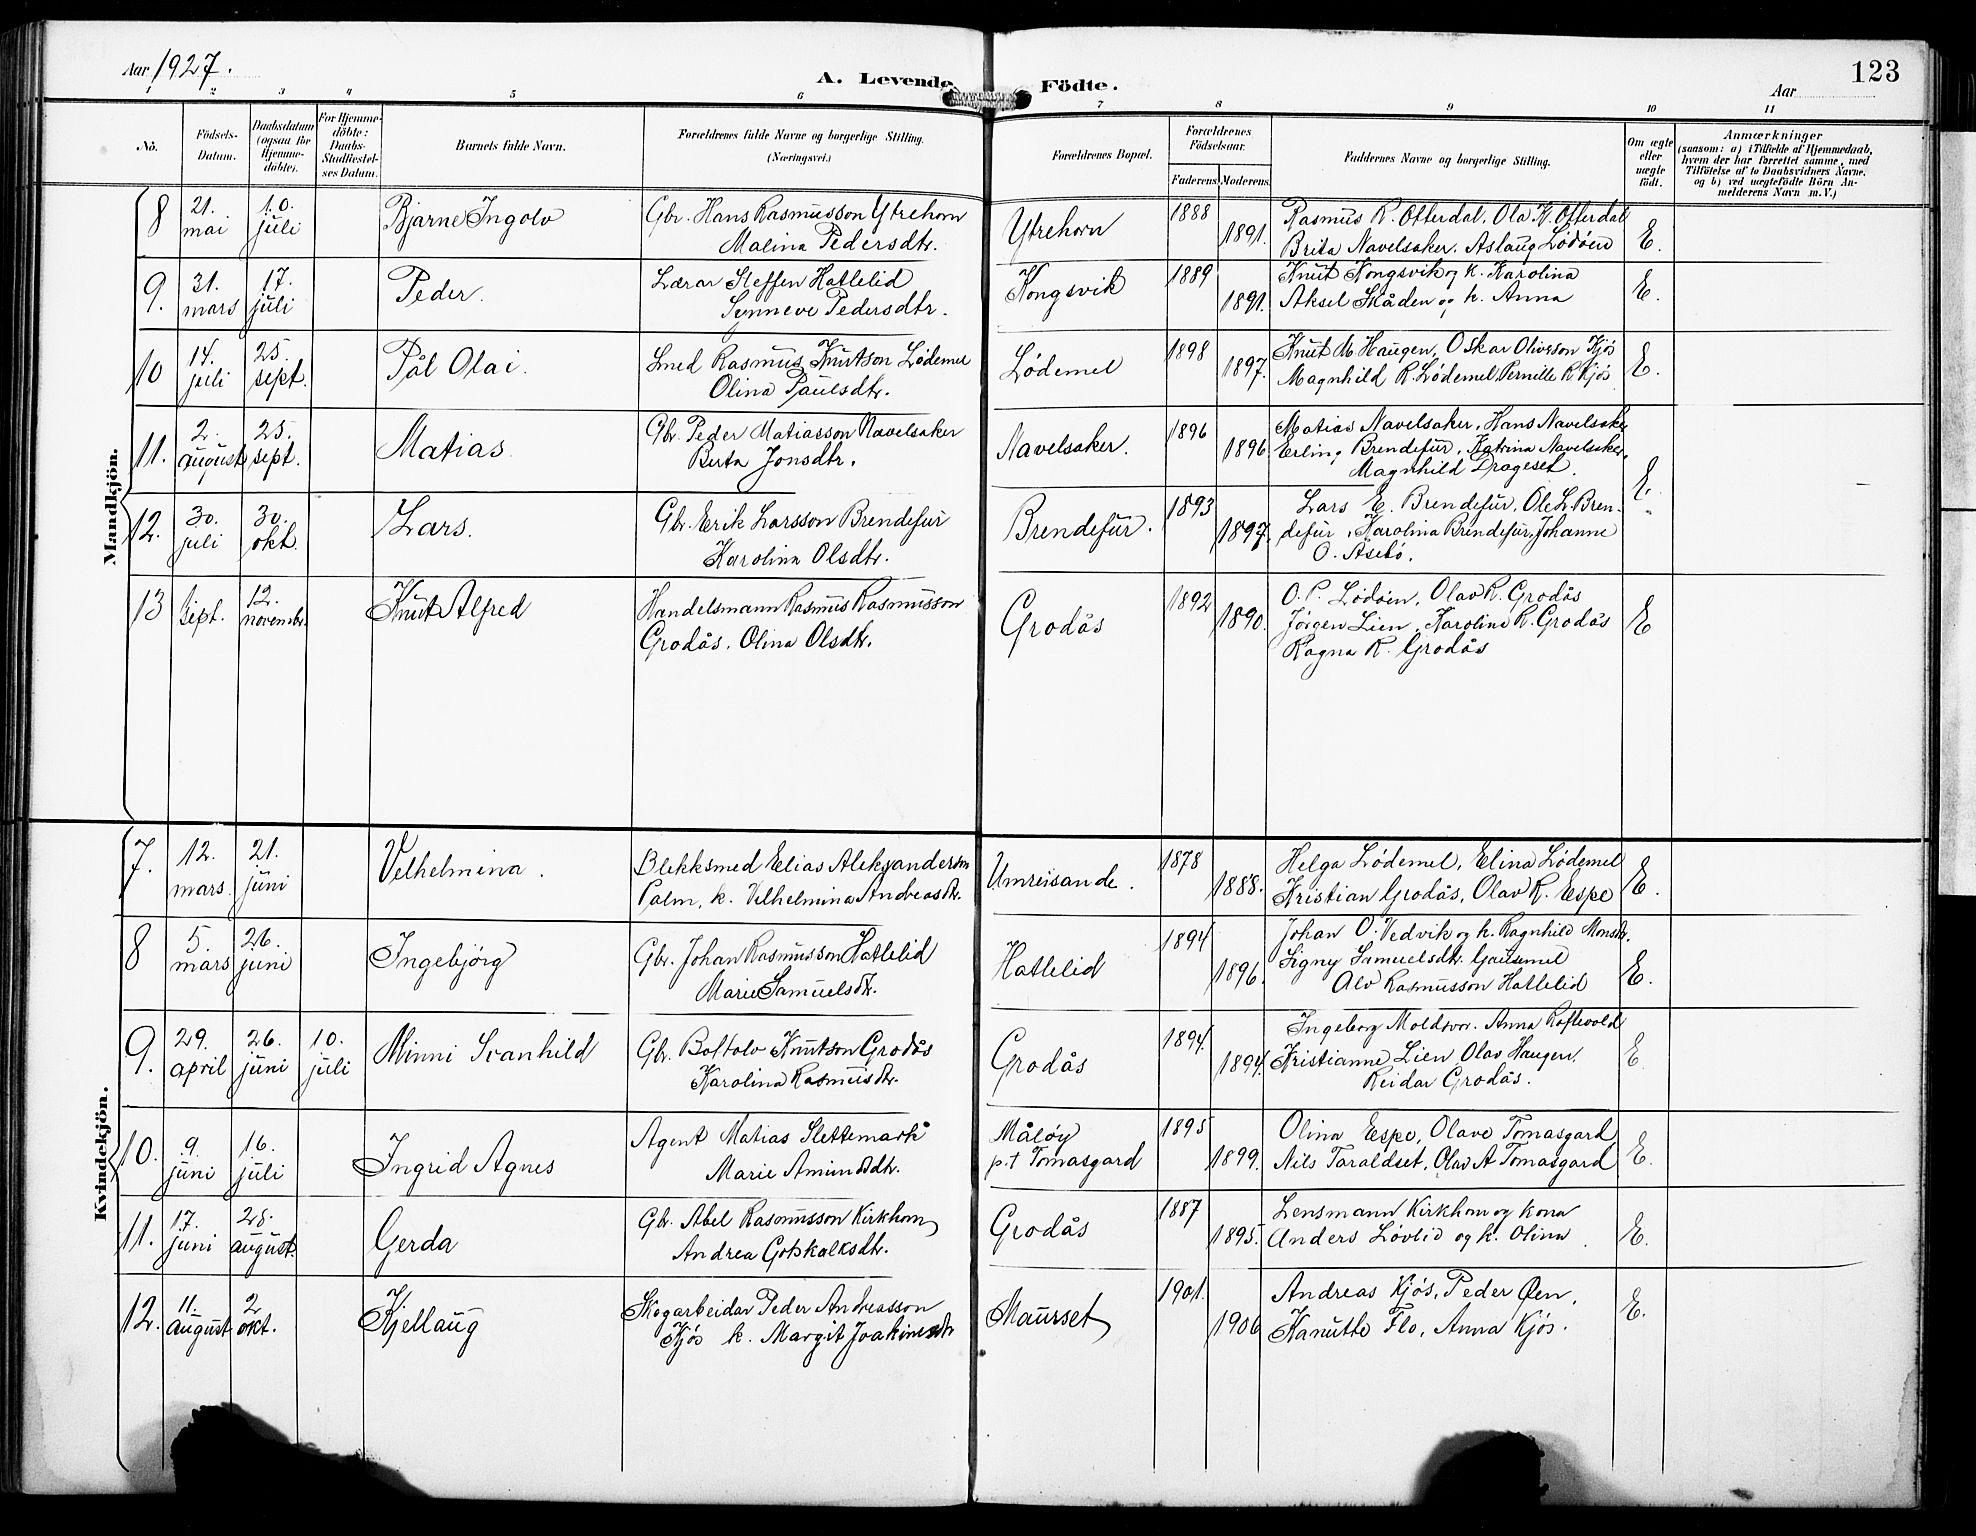 Aar 1927.
A. Levende Födte.
123
Aar
1 2 3 4 5 6 7 8 9 10 11
No.
Födsels-
Datum.
Daabsdatum
(ogsaa for
Hjemme-
döbte).
For Hjemme-
döbte:
Daabs-
Stadfæstel-
ses Datum.
Barnets fulde Navn.
Forældrenes fulde Navne og borgerlige Stilling.
(Næringsvei.)
Forældrenes Bopæl.
Forældrenes
Födselsaar.
Faderens. Moderens.
Faddernes Navne og borgerlige Stilling.
Om ægte
eller
uægte
födt.
Anmærkninger
(saasom: a) i Tilfælde af Hjemmedaab,
hvem der har forrettet samme, med
Tilföielse af to Daabsvidners Navne.
og b) ved uægtefödte Börn An-
melderens Navn m. V.)
Mandkjön.
8 21. mai 10. juli Bjarne Ingolv Gbr. Hans Rasmusson Ytrehorn
Malina Pedersdtr. Ytrehorn 1888 1891. Rasmus R. Otterdal, Ola K. Otterdal
Brita Navelsaker. Aslaug Lödöen E.
9. 31. mars 17. juli Peder. Lærar Steffen Hatlelid
Synneve Pedersdtr. Kongsvik 1889 1891. Knut Kongsvik og k. Karolina
Aksel Skåden og k. Anna E.
10 14. juli 25. sept. Pål Olai. Smed Rasmus Knutson Lødemel
Olina Paulsdtr. Lødemel 1898 1897. Knut M Haugen, Oskar Oliverson Kjøs
Magnhild R. Lødemel, Pernille R Kjøs E.
11. 2. august 25. sept. Matias. Gbr. Peder Matiasson Navelsaker
Berta Jonsdtr. Navelsaker. 1896 1896 Matias Navelsaker, Hans Navelsaker
Erling Brendefur, Katrina Navelsaker,
Magnhild Drageset. E.
12. 30. juli 30. okt. Lars. Gbr. Erik Larsson Brendefur
Karolina Olsdtr. Brendefur. 1893 1897. Lars E. Brendefur, Ole L. Bren-
defur, Karolina Brendefur, Johanne
O. Åsebø. "
13 sept. 12. novembr. Knut Alfred Handelsmann Rasmus Rasmusson
Grodås. Olina Olsdtr. Grodås 1892 1890. O. P. Lödöen, Olav R. Grodås
Jørgen Lien, Karoline R. Grodås
Ragna R. Grodås E
Kvindekjön.
7. 12. mars. 21. juni Velhelmina. Blekksmed Elias Aleksanderson
Palm, k. Vilhelmina Andreasdtr. Umreisande. 1878 1888. Helga Lødemel, Elina Lødemel
Kristian Grodås, Olav R. Espe E.
8 5. mars 26. juni Ingebjörg Gbr. Johan Rasmusson Hatlelid
Marie Samuelsdtr. Hatlelid 1894 1896. Johan O. Vedvik og k. Ragnhild Monsdtr.
Signy Samuelsdtr. Gausemel
Alv Rasmusson Hatlelid E.
9. 29. april 26. juni 10. juli Minni Svanhild Gbr. Boltolv Knutson Grodås
Karolina Rasmusdtr. Grodås 1894. 1894. Ingeborg Moldsvor. Anna Roftevold
Kristianne Lien Olav Haugen,
Reidar Grodås. E
10. 9. juni 16. juli Ingrid Agnes Agent Matias Slettemark
Marie Amundsdtr. Måløy
p.t Tomasgard 1895 1899. Olina Espe, Olave Tomasgard
Nils Taraldset, Olav A Tomasgard E.
11. 17. juni 28. august. Gerda Gbr. Abel Rasmusson Kirkhorn
Andrea Gotskalksdtr. Grodås 1887 1895. Lensmann Kirkhorn og kona
Anders Løvlid og k. Olina. E.
12. 11. august 2 okt. Kjellaug Skogarbeidar Peder Andreasson
Kjøs k. Margit Joakimsdtr Maurset 1901. 1906 Andreas Kjøs, Peder Øen,
Kanutte Flo, Anna Kjøs. E.